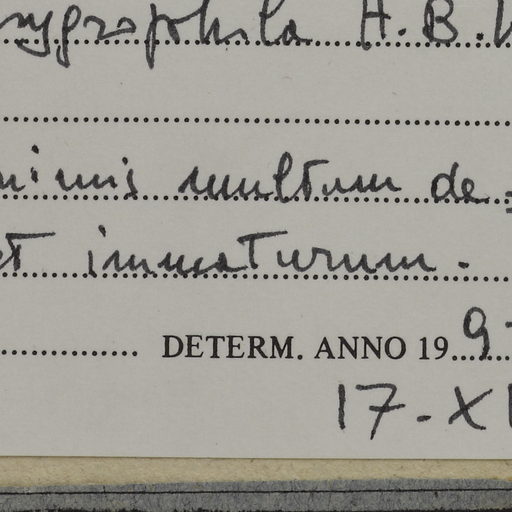 hygrophila H.B.
nimis multum de
et immaturum.
DETERM. ANNO 19 9
17-XI